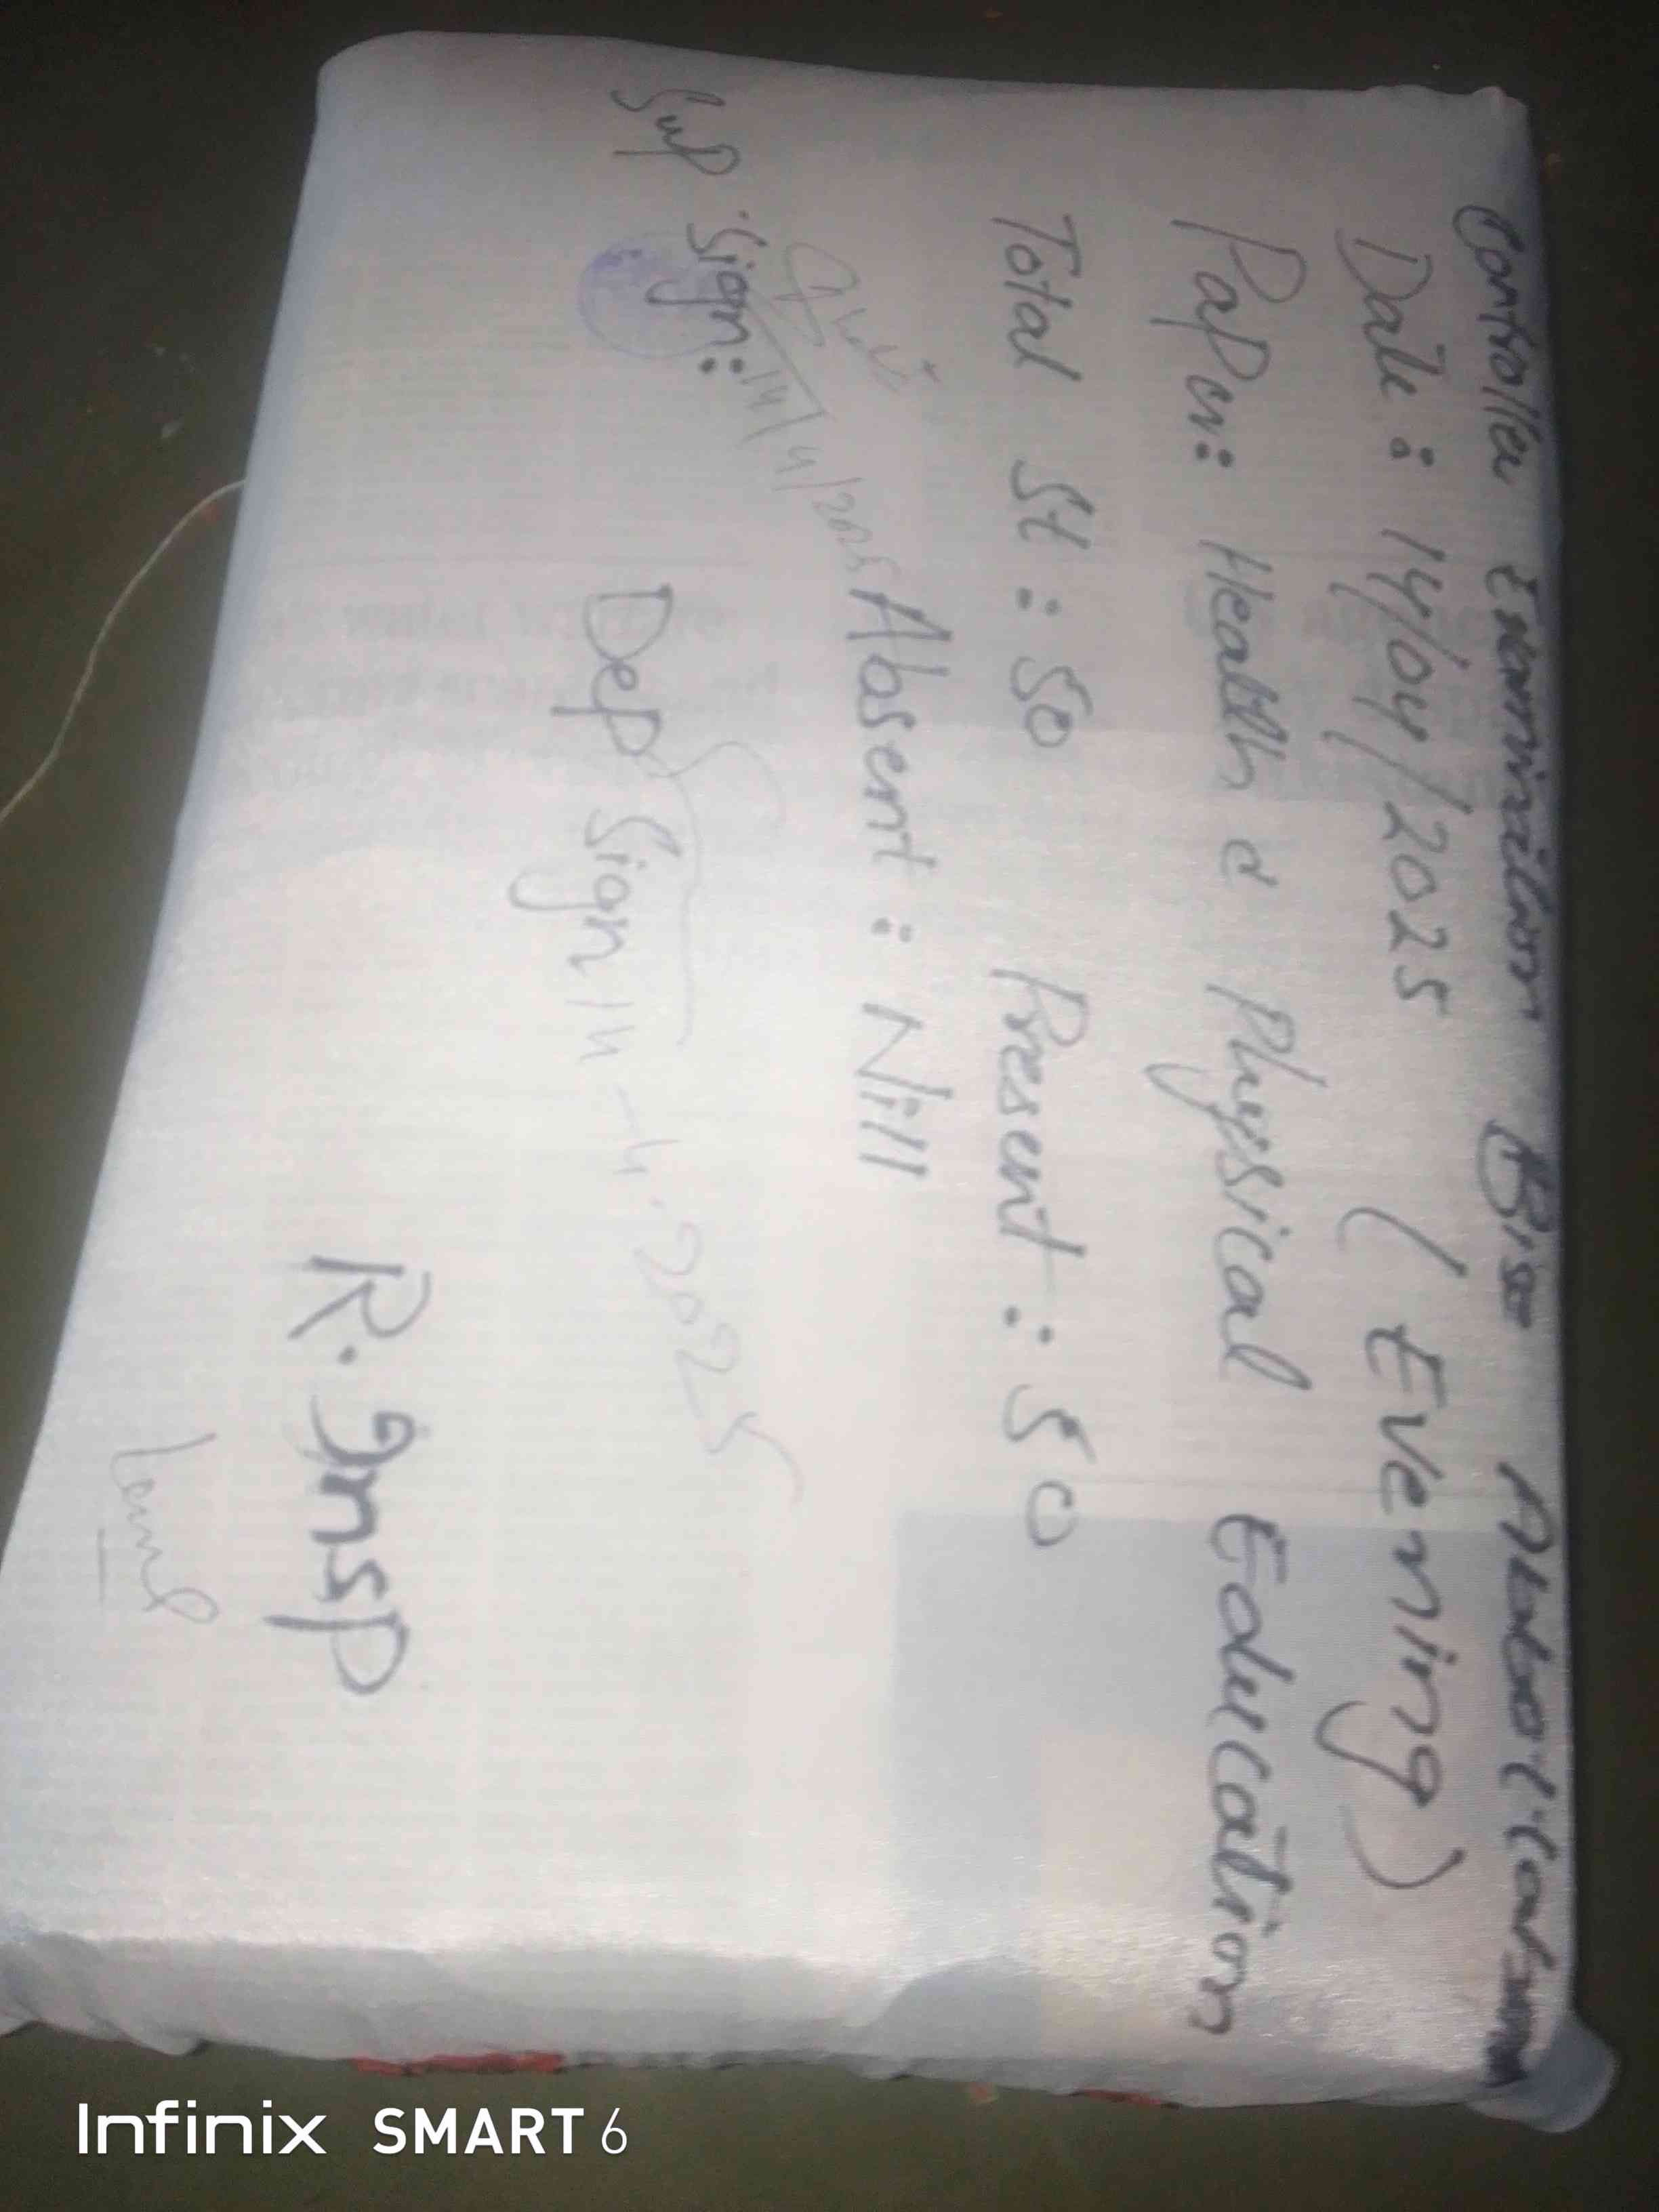 Controller Examination Bise Abbottabad
Date: 14/04/2025 (Evening)
Paper: Health & Physical Education
Total St: 50 Present: 50
Absent: Nill
Sup Sign: 14/4/2025
Dep Sign 14-4.2025
R. Insp
Infinix SMART 6